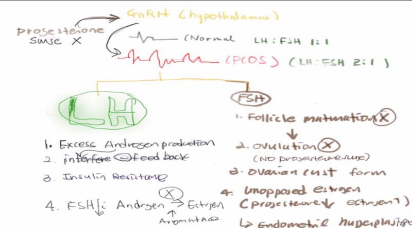 GnRH (hypothalamus)
progesterone
sense X
(Normal LH:FSH 1:1
(PCOS) (LH:FSH 2:1)
LH
FSH
1. Excess Androgen production
2. interfere feed back
3. Insulin Resistance
4. FSH↓: Androgen → Estrogen
X
Aromatase
1. Follicle maturation X
2. ovulation X
(NO progesterone)
3. Ovarian cyst form
4. Unopposed estrogen
(progesterone↓ estrogen↑)
↳ Endometrial hyperplasia